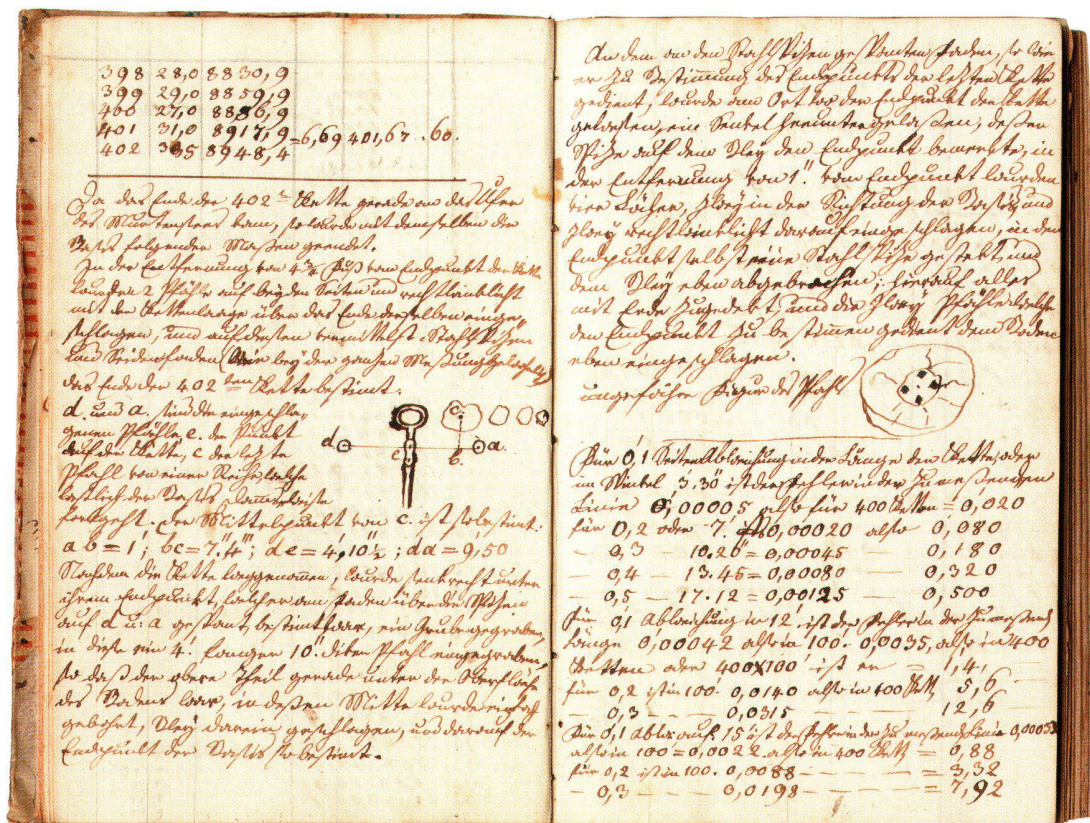 398 28,0 8830,9
399 29,0 8859,9
400 27,0 8886,9
401 31,0 8917,9
402 305 8948,4 = 6,69 401,67 . 60.
Da das Ende der 402 Kette gerade an das Ufer
des Murtensees kam, so wurde mit demselben die
Basis folgender Maßen geendet.
In der Entfernung von 4¾ Fuß vom Endpunkt der Kette
wurden 2 Pfähle auf beyden Seiten und rechtwinklicht
mit der Kettenlaage über das Ende derselben einge-
schlagen, und auf diesen vermittelst Stahlspizen
und Seidenfaden (wie bey der ganzen Messung
das Ende der 402ten Kette bestimt.
d. und a. sind die eingeschla-
genen Pfähle, e. der Punkt
auf der Kette, c der letzte
Pfahl von einer Reihe, welche
der Basis
fortgeht. Der Mittelpunkt von c. ist so bestimt:
ab = 1'; bc = 7."4'''; de = 4,'10"½; da = 9,'50
Nachdem die Kette weggenommen, wurde senkrecht unter
ihrem Endpunkt, welcher am Faden über die Spizen
auf d u: a gespant, bestimt war, ein Grube gegraben,
in diese ein 4' langer 10" diker Pfahl eingegraben,
so daß der obere Theil gerade unter der Oberfläche
des Bodens war, in deßen Mitte wurde ein Loch
gebohrt, Bley darein geschlagen, und darauf der
Endpunkt der Basis so bestimt.
d. e c. b. a.
An dem an den Stahlspizen gespanten Faden, so wie
er zu Bestimmung des Endpunkts der letzten Kette
gedient, wurde am Ort wo der Endpunkt der Kette
gewesen, ein Senkel heruntergelaßen, deßen
Spize auf dem Bley den Endpunkt bemerkte, in
der Entfernung von 1". vom Endpunkt wurden
vier Löcher, zwey in der Richtung der Basis, und
zwey rechtwinklicht darauf eingeschlagen, in den
Endpunkt selbst eine Stahlspize gestekt, und
dem Bley eben abgebrochen; hierauf alles
mit Erde zugedekt, und die zwey Pfähle welche
den Endpunkt zu bestimen gedient dem Boden
eben eingeschlagen.
ungefähre Figur des Pfahls
Für 0,1 Seiten Abweichung in der Länge der Kette, oder
im Winkel 3.30" ist der Fehler in der zu meßenden
Linie 0,00005 also für 400 Ketten = 0,020
für 0,2 oder 7. 0,00020 also 0,080
— 0,3 — 10.20" = 0,00045 — 0,180
— 0,4 — 13.45 = 0,00080 — 0,320
— 0,5 — 17.12 = 0,00125 — 0,500
Für 0,1 Abweichung in 12,' ist der Fehler in der zu messend
Länge 0,00042 also in 100.' 0,0035, also in 400
Ketten oder 400x100' ist er = 1,4,
für 0,2 ist in 100. 0,0140 also in 400 Kett, 5,6 —
— 0,3 — — — 0,0315 — — — 12,6 —
Für 0,1 Abw: auf 15 ist der Fehler in der zu messend Linie 0,00033
also in 100 = 0,0022 also in 400 Kett = 0,88
für 0,2 ist in 100. 0,0088 — — — = 3,32
— 0,3 — — — 0,0198 — — — = 7,92